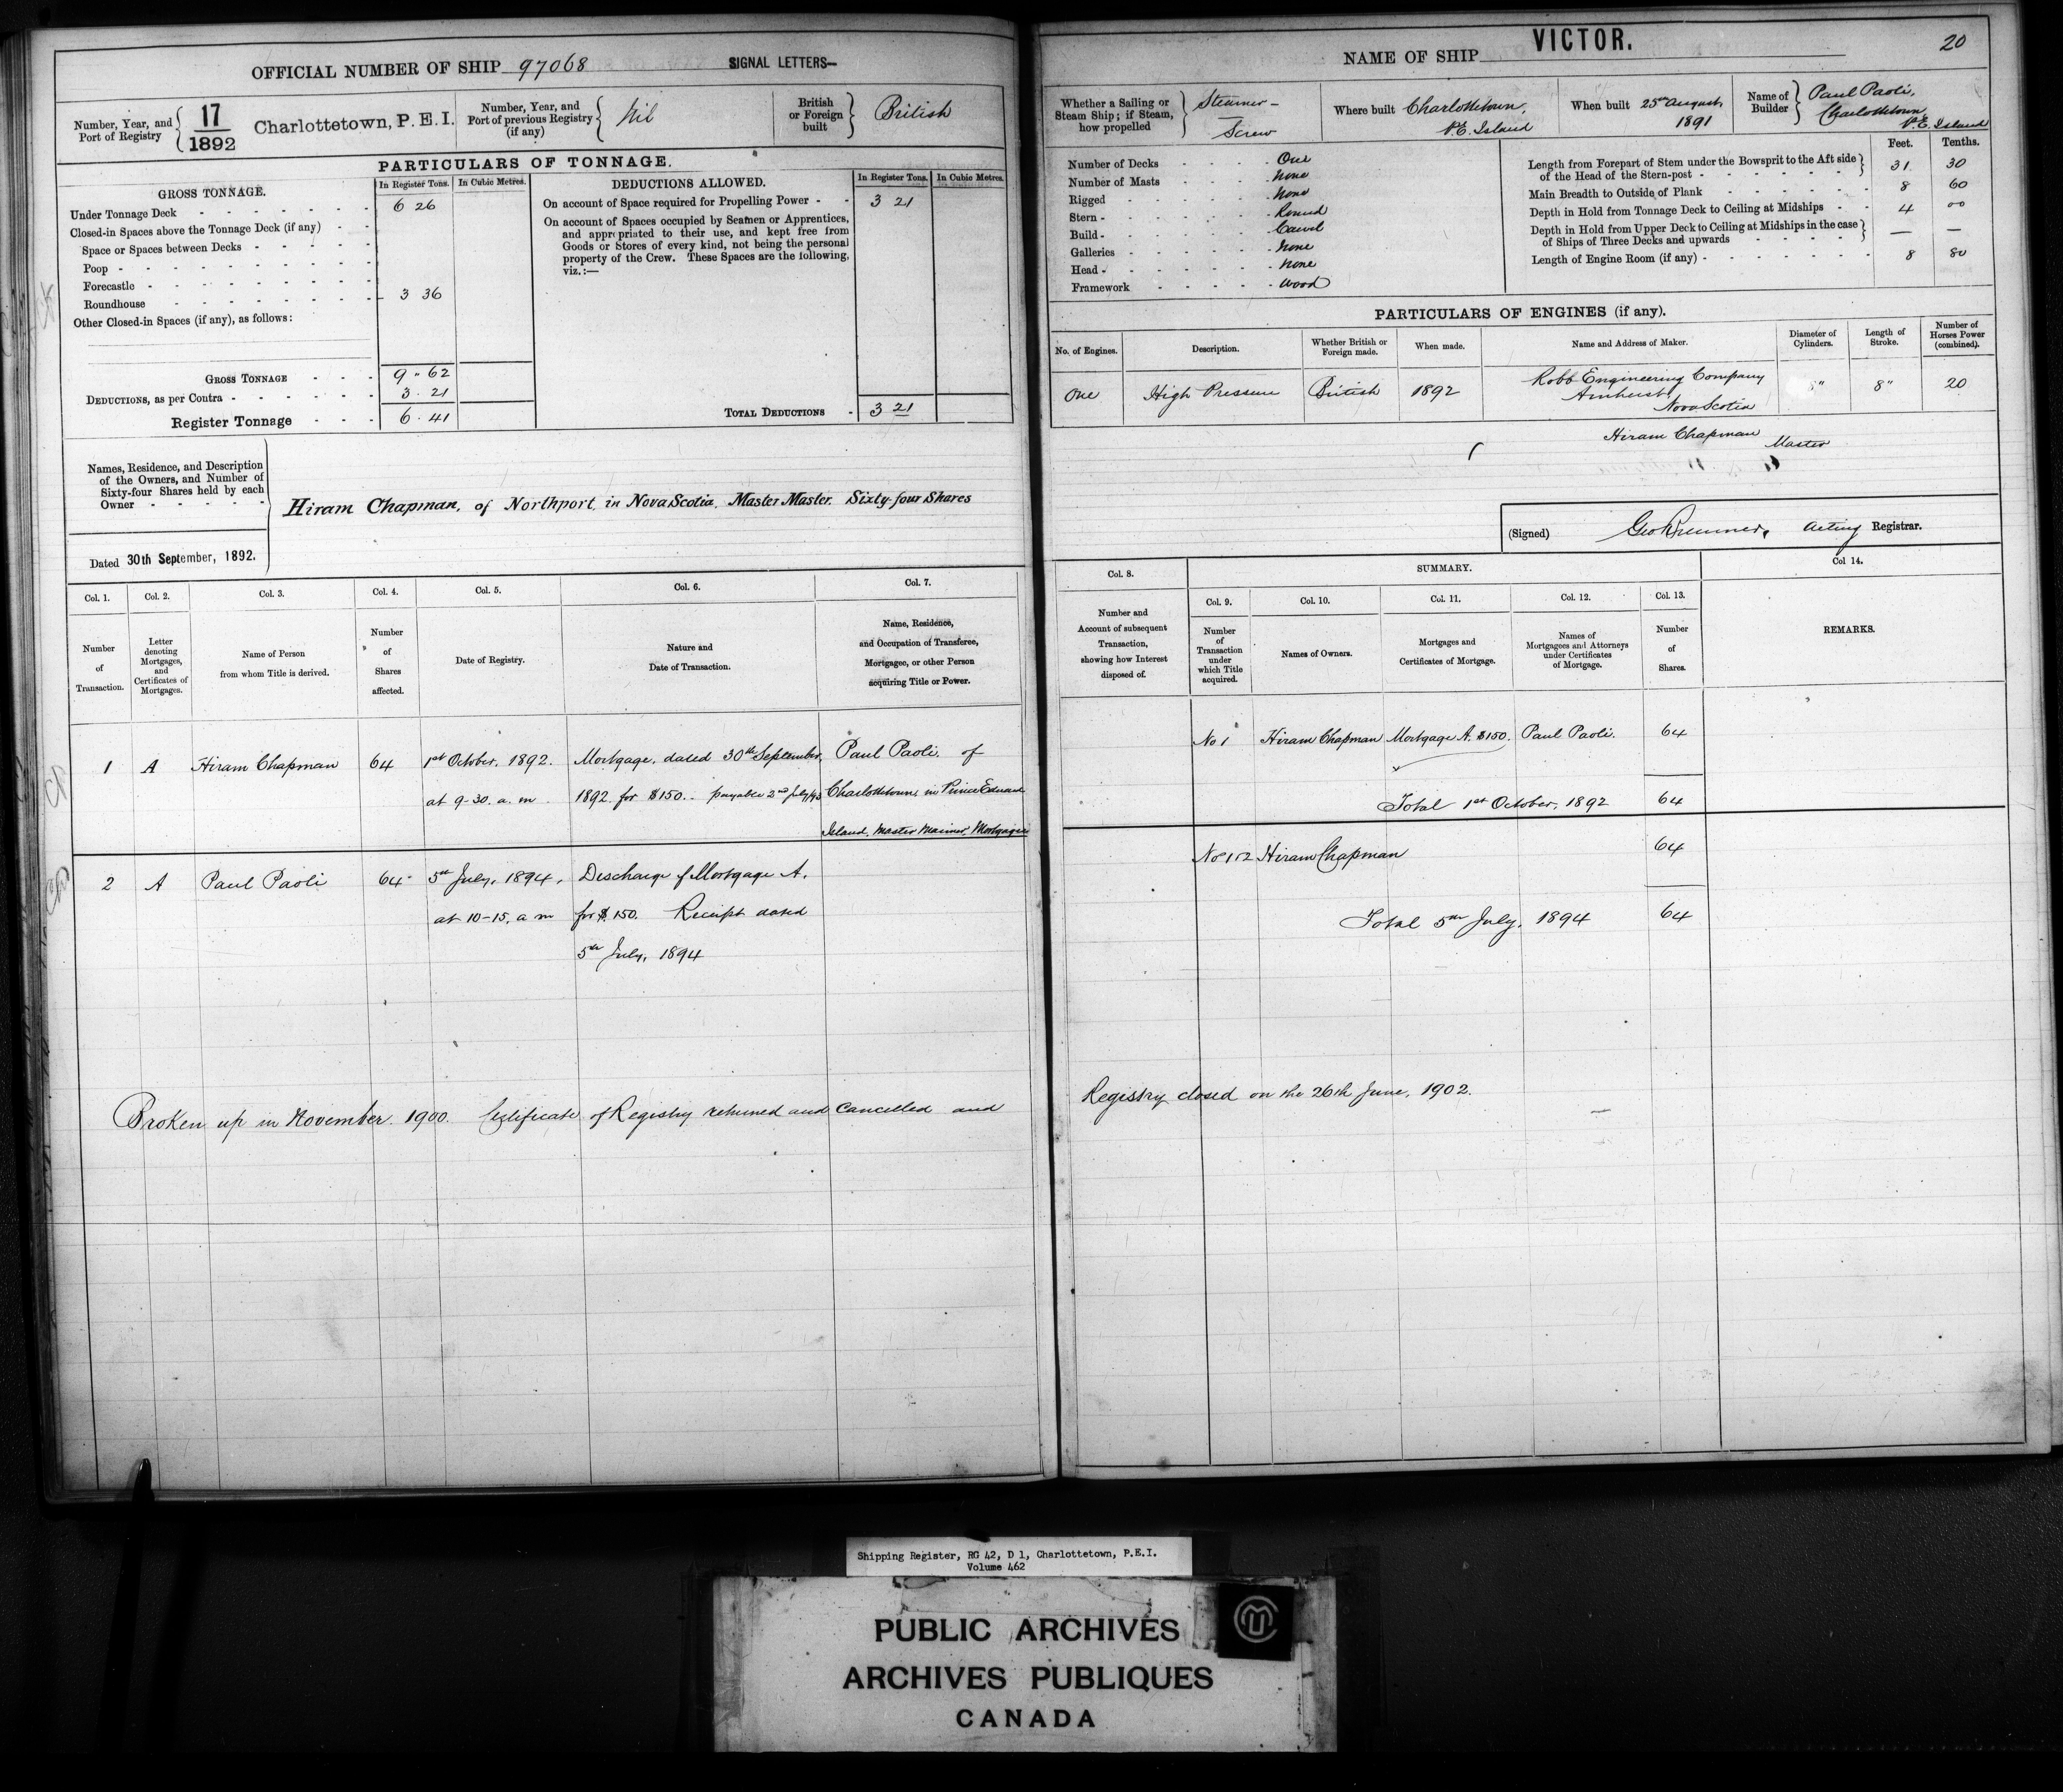 OFFICIAL NUMBER OF SHIP 97068 SIGNAL LETTERS—
Number, Year, and Port of Registry { 17 / 1892 Charlottetown, P. E. I.
Number, Year, and Port of previous Registry (if any) { Nil
British or Foreign built } British
PARTICULARS OF TONNAGE.
GROSS TONNAGE. In Register Tons. In Cubic Metres.
Under Tonnage Deck - 6 26
Closed-in Spaces above the Tonnage Deck (if any) - -
Space or Spaces between Decks -
Poop -
Forecastle -
Roundhouse - 3 36
Other Closed-in Spaces (if any), as follows:
GROSS TONNAGE - 9 " 62
DEDUCTIONS, as per Contra - 3 . 21
Register Tonnage - 6 . 41
DEDUCTIONS ALLOWED. In Register Tons. In Cubic Metres.
On account of Space required for Propelling Power - - 3 21
On account of Spaces occupied by Seamen or Apprentices,
and appropriated to their use, and kept free from
Goods or Stores of every kind, not being the personal
property of the Crew. These Spaces are the following,
viz.:—
TOTAL DEDUCTIONS - 3 21
Names, Residence, and Description
of the Owners, and Number of
Sixty-four Shares held by each
Owner - - - - -
Hiram Chapman, of Northport, in Nova Scotia, Master Master. Sixty-four Shares
Dated 30th September, 1892.
Col. 1. Col. 2. Col. 3. Col. 4. Col. 5. Col. 6. Col. 7.
Number of Transaction.
Letter denoting Mortgages, and Certificates of Mortgages.
Name of Person from whom Title is derived.
Number of Shares affected.
Date of Registry.
Nature and Date of Transaction.
Name, Residence, and Occupation of Transferee, Mortgagee, or other Person acquiring Title or Power.
1 A Hiram Chapman 64 1st October, 1892. Mortgage, dated 30th September, Paul Paoli, of
at 9-30. a. m. 1892 for $150. payable 2nd July/93 Charlottetown, in Prince Edward
Island, Master Mariner, Mortgagee
2 A Paul Paoli 64 5th July, 1894, Discharge of Mortgage A.
at 10-15, a m for $150. Receipt dated
5th July, 1894
Broken up in November. 1900. Certificate of Registry returned and cancelled and
NAME OF SHIP VICTOR. 20
Whether a Sailing or Steam Ship; if Steam, how propelled } Steamer - Screw
Where built Charlottetown, P.E. Island
When built 25th August, 1891
Name of Builder } Paul Paoli, Charlottetown P.E. Island
Number of Decks - One
Number of Masts - None
Rigged - None
Stern - Round
Build - Carvel
Galleries - None
Head - None
Framework - Wood
Feet. Tenths.
Length from Forepart of Stem under the Bowsprit to the Aft side
of the Head of the Stern-post - 31 30
Main Breadth to Outside of Plank - 8 60
Depth in Hold from Tonnage Deck to Ceiling at Midships - 4 00
Depth in Hold from Upper Deck to Ceiling at Midships in the case
of Ships of Three Decks and upwards - — —
Length of Engine Room (if any) - 8 80
PARTICULARS OF ENGINES (if any).
No. of Engines. Description. Whether British or Foreign made. When made. Name and Address of Maker. Diameter of Cylinders. Length of Stroke. Number of Horses Power (combined).
One High Pressure British 1892 Robb Engineering Company Amherst, Nova Scotia 8" 20
Hiram Chapman Master
(Signed) Acting Registrar.
Col. 8. SUMMARY. Col 14.
Col. 9. Col. 10. Col. 11. Col. 12. Col. 13.
Number and Account of subsequent Transaction, showing how Interest disposed of.
Number of Transaction under which Title acquired.
Names of Owners.
Mortgages and Certificates of Mortgage.
Names of Mortgagees and Attorneys under Certificates of Mortgage.
Number of Shares.
REMARKS.
No 1 Hiram Chapman Mortgage A. $150. Paul Paoli. 64
Total 1st October, 1892 64
Hiram Chapman 64
Total 5th July, 1894 64
Registry closed on the 26th June, 1902.
Shipping Register, RG 42, D 1, Charlottetown, P.E.I.
Volume 462
PUBLIC ARCHIVES
ARCHIVES PUBLIQUES
CANADA